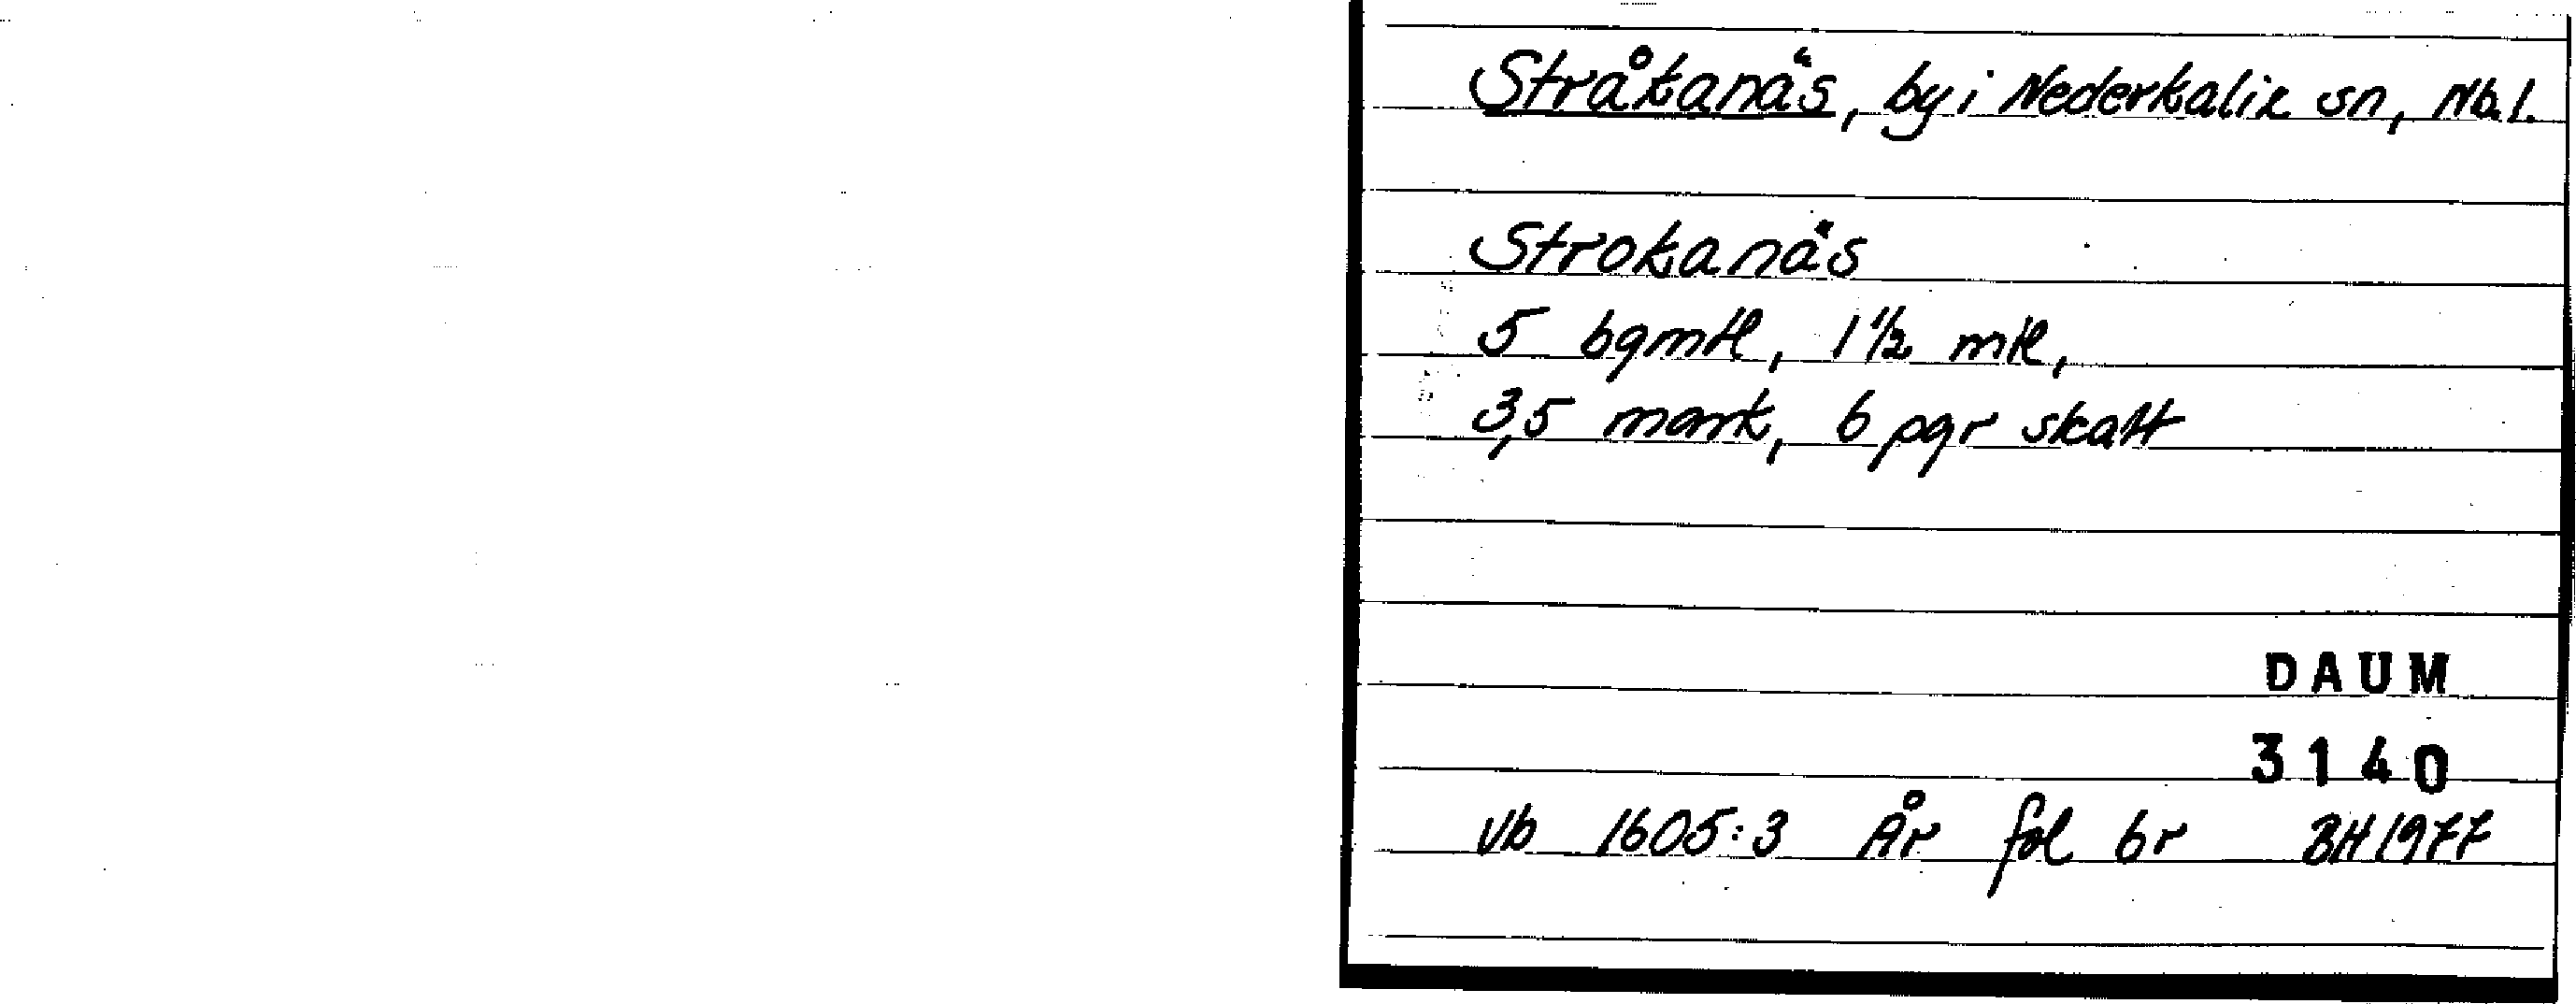 Stråkanäs, by i Nederkalix sn, Nb.l.
Strokanäs
5 bgmtl, 1 1/2 mtl,
3,5 mark, 6 pgr skatt
DAUM
3140
Vb 1605:3 År fol 6r BH 1977